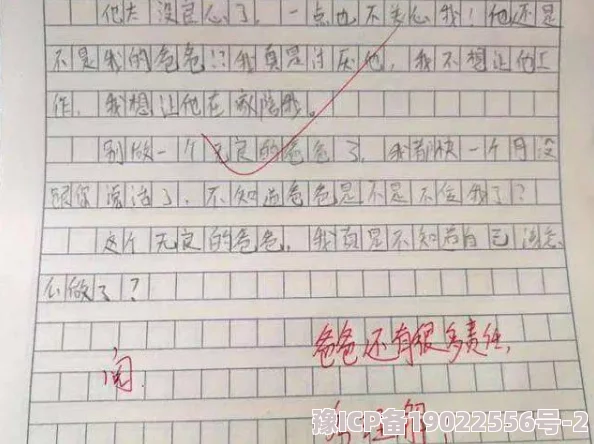 他太没良心了，一点也不关心我！他还是
不是我的爸爸!？我真是讨厌他，我不想让他工
作，我想让他在家陪我。
别做一个无良的爸爸了，我都快一个月没
跟你说话了，不知道爸爸是不是不住我了？
这个无良的爸爸，我真是不知道自己该怎
么做了？
爸爸还有很多责任，
阅
豫ICP备19022556号-2